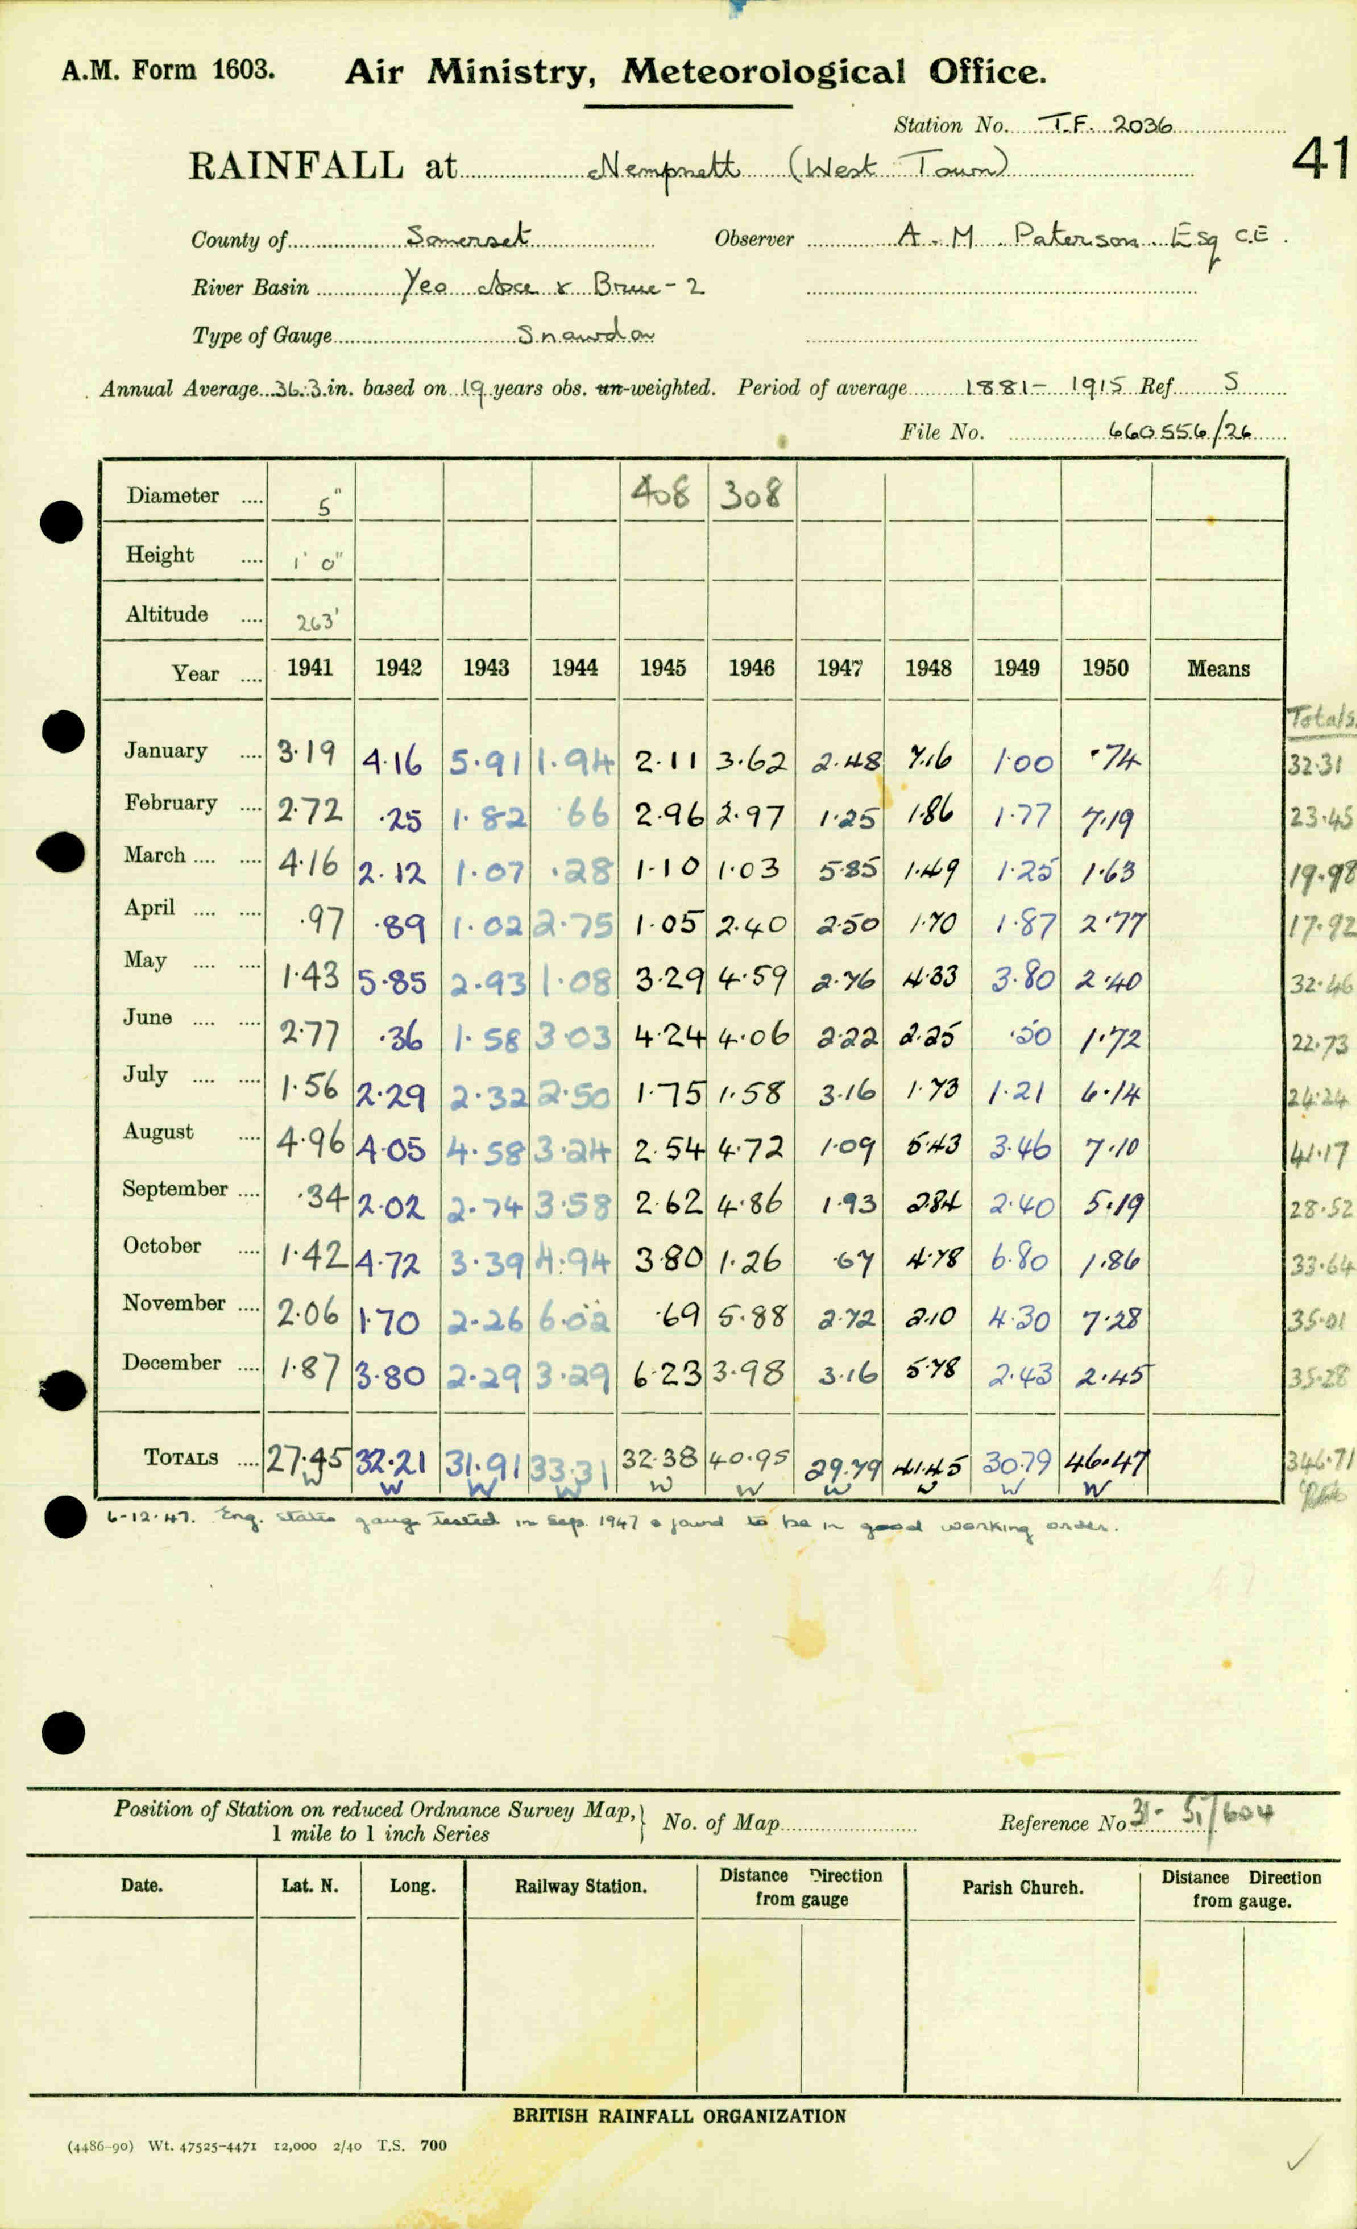 A.M. Form 1603. Air Ministry, Meteorological Office.
Station No. T.F. 2036
41
RAINFALL at Nempnett (West Town)
County of Somerset Observer A. M. Paterson Esq C.E.
River Basin Yeo Axe & Brue - 2
Type of Gauge Snowdon
Annual Average 36.3 in. based on 19 years obs. un-weighted. Period of average 1881 - 1915 Ref S
File No. 660556/26
Diameter .... 5" 408 308
Height .... 1' 0"
Altitude .... 263'
Year .... 1941 1942 1943 1944 1945 1946 1947 1948 1949 1950 Means
Totals
January .... 3.19 4.16 5.91 1.94 2.11 3.62 2.48 7.16 1.00 .74 32.31
February .... 2.72 .25 1.82 .66 2.96 2.97 1.25 1.86 1.77 7.19 23.45
March .... .... 4.16 2.12 1.07 .28 1.10 1.03 5.85 1.49 1.25 1.63 19.98
April .... .... .97 .89 1.02 2.75 1.05 2.40 2.50 1.70 1.87 2.77 17.92
May .... .... 1.43 5.85 2.93 1.08 3.29 4.59 2.76 4.33 3.80 2.40 32.46
June .... .... 2.77 .36 1.58 3.03 4.24 4.06 2.22 2.25 .50 1.72 22.73
July .... .... 1.56 2.29 2.32 2.50 1.75 1.58 3.16 1.73 1.21 6.14 24.24
August .... 4.96 4.05 4.58 3.24 2.54 4.72 1.09 5.43 3.46 7.10 41.17
September .... .34 2.02 2.74 3.58 2.62 4.86 1.93 2.84 2.40 5.19 28.52
October .... 1.42 4.72 3.39 4.94 3.80 1.26 .67 4.78 6.80 1.86 33.64
November .... 2.06 1.70 2.26 6.02 .69 5.88 2.72 2.10 4.30 7.28 35.01
December .... 1.87 3.80 2.29 3.29 6.23 3.98 3.16 5.78 2.43 2.45 35.28
TOTALS .... 27.45 32.21 31.91 33.31 32.38 40.95 29.79 41.45 30.79 46.47 346.71
W W W W W W W W W W
6-12-47. Eng. states gauge tested in Sep. 1947 & found to be in good working order.
Position of Station on reduced Ordnance Survey Map, 1 mile to 1 inch Series } No. of Map Reference No 31- 51/604
Date. Lat. N. Long. Railway Station. Distance Direction from gauge Parish Church. Distance Direction from gauge.
BRITISH RAINFALL ORGANIZATION
(4486-90) Wt. 47525-4471 12,000 2/40 T.S. 700